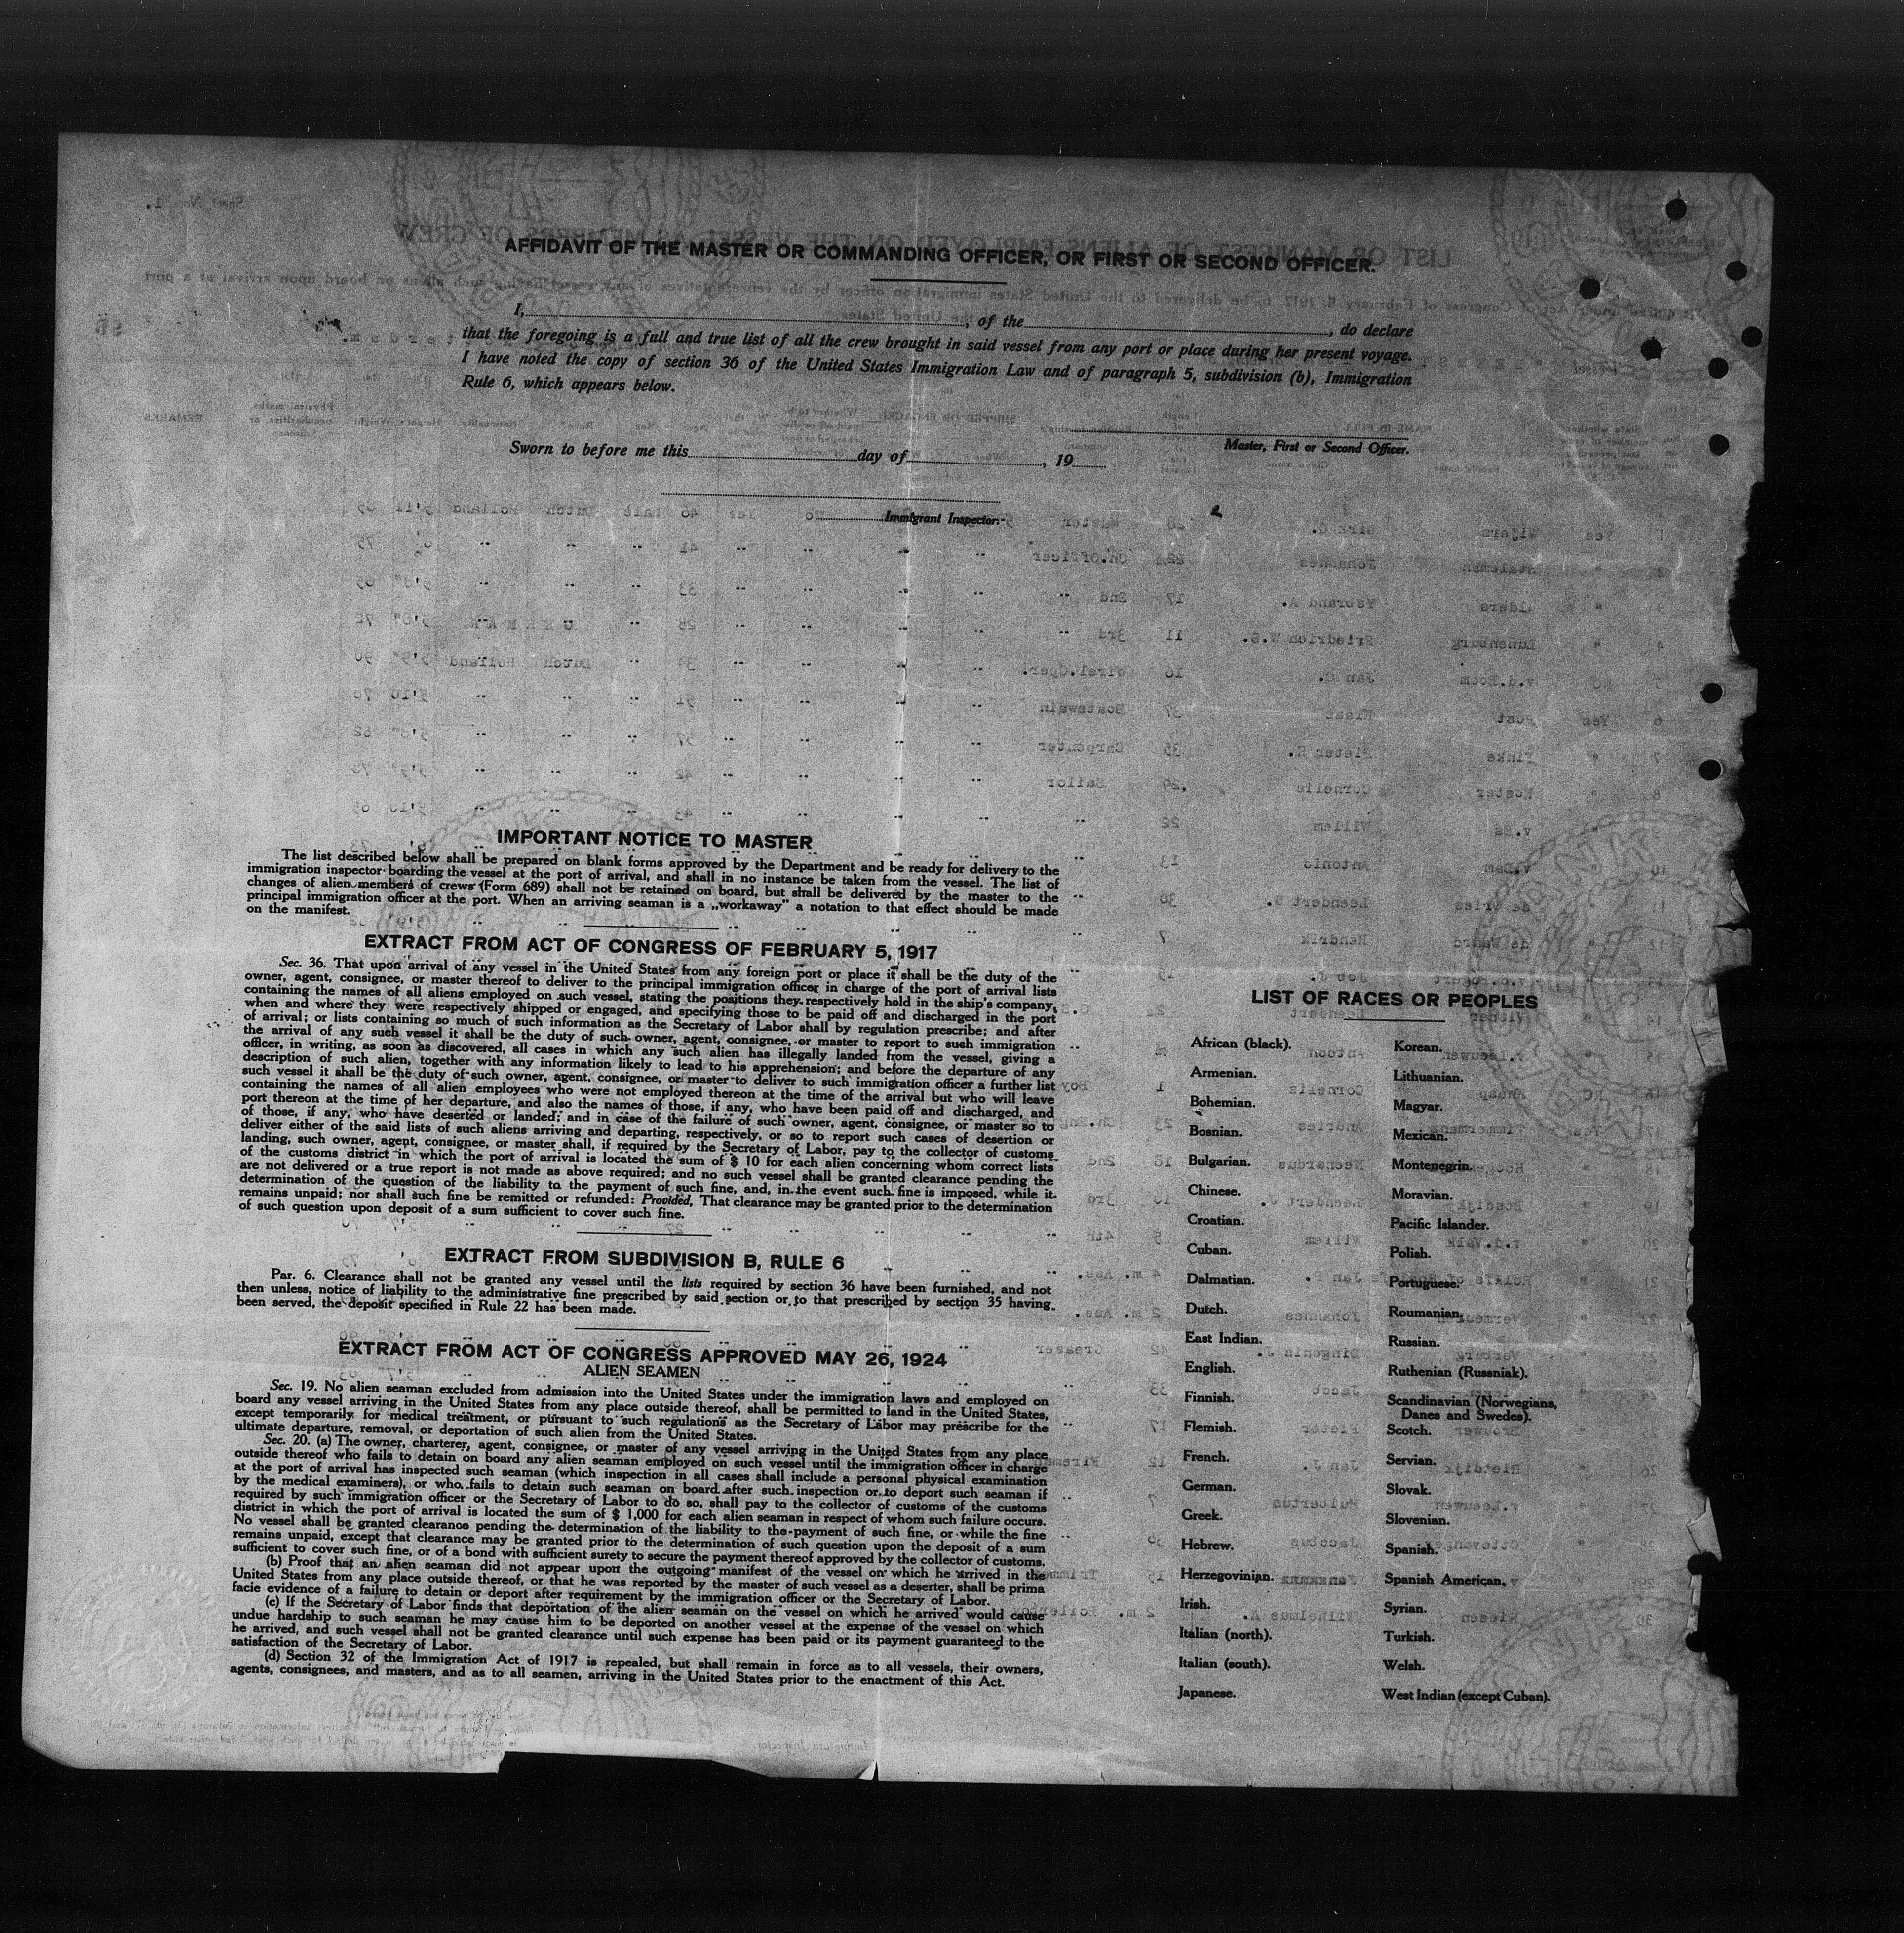 AFFIDAVIT OF THE MASTER OR COMMANDING OFFICER, OR FIRST OR SECOND OFFICER.
I, , of the , do declare
that the foregoing is a full and true list of all the crew brought in said vessel from any port or place during her present voyage.
I have noted the copy of section 36 of the United States Immigration Law and of paragraph 5, subdivision (b), Immigration
Rule 6, which appears below.
Master, First or Second Officer.
Sworn to before me this day of , 19
Immigrant Inspector.
IMPORTANT NOTICE TO MASTER
The list described below shall be prepared on blank forms approved by the Department and be ready for delivery to the
immigration inspector boarding the vessel at the port of arrival, and shall in no instance be taken from the vessel. The list of
changes of alien members of crews (Form 689) shall not be retained on board, but shall be delivered by the master to the
principal immigration officer at the port. When an arriving seaman is a „workaway" a notation to that effect should be made
on the manifest.
EXTRACT FROM ACT OF CONGRESS OF FEBRUARY 5, 1917
Sec. 36. That upon arrival of any vessel in the United States from any foreign port or place it shall be the duty of the
owner, agent, consignee, or master thereof to deliver to the principal immigration officer in charge of the port of arrival lists
containing the names of all aliens employed on such vessel, stating the positions they respectively hold in the ship's company,
when and where they were respectively shipped or engaged, and specifying those to be paid off and discharged in the port
of arrival; or lists containing so much of such information as the Secretary of Labor shall by regulation prescribe; and after
the arrival of any such vessel it shall be the duty of such owner, agent, consignee, or master to report to such immigration
officer, in writing, as soon as discovered, all cases in which any such alien has illegally landed from the vessel, giving a
description of such alien, together with any information likely to lead to his apprehension; and before the departure of any
such vessel it shall be the duty of such owner, agent, consignee, or master to deliver to such immigration officer a further list
containing the names of all alien employees who were not employed thereon at the time of the arrival but who will leave
port thereon at the time of her departure, and also the names of those, if any, who have been paid off and discharged, and
of those, if any, who have deserted or landed; and in case of the failure of such owner, agent, consignee, or master so to
deliver either of the said lists of such aliens arriving and departing, respectively, or so to report such cases of desertion or
landing, such owner, agent, consignee, or master shall, if required by the Secretary of Labor, pay to the collector of customs
of the customs district in which the port of arrival is located the sum of $ 10 for each alien concerning whom correct lists
are not delivered or a true report is not made as above required; and no such vessel shall be granted clearance pending the
determination of the question of the liability to the payment of such fine, and, in the event such fine is imposed, while it
remains unpaid; nor shall such fine be remitted or refunded: Provided, That clearance may be granted prior to the determination
of such question upon deposit of a sum sufficient to cover such fine.
EXTRACT FROM SUBDIVISION B, RULE 6
Par. 6. Clearance shall not be granted any vessel until the lists required by section 36 have been furnished, and not
then unless, notice of liability to the administrative fine prescribed by said section or to that prescribed by section 35 having
been served, the deposit specified in Rule 22 has been made.
EXTRACT FROM ACT OF CONGRESS APPROVED MAY 26, 1924
ALIEN SEAMEN
Sec. 19. No alien seaman excluded from admission into the United States under the immigration laws and employed on
board any vessel arriving in the United States from any place outside thereof, shall be permitted to land in the United States,
except temporarily for medical treatment, or pursuant to such regulations as the Secretary of Labor may prescribe for the
ultimate departure, removal, or deportation of such alien from the United States.
Sec. 20. (a) The owner, charterer, agent, consignee, or master of any vessel arriving in the United States from any place
outside thereof who fails to detain on board any alien seaman employed on such vessel until the immigration officer in charge
at the port of arrival has inspected such seaman (which inspection in all cases shall include a personal physical examination
by the medical examiners), or who fails to detain such seaman on board after such inspection or to deport such seaman if
required by such immigration officer or the Secretary of Labor to do so, shall pay to the collector of customs of the customs
district in which the port of arrival is located the sum of $ 1,000 for each alien seaman in respect of whom such failure occurs.
No vessel shall be granted clearance pending the determination of the liability to the payment of such fine, or while the fine
remains unpaid, except that clearance may be granted prior to the determination of such question upon the deposit of a sum
sufficient to cover such fine, or of a bond with sufficient surety to secure the payment thereof approved by the collector of customs.
(b) Proof that an alien seaman did not appear upon the outgoing manifest of the vessel on which he arrived in the
United States from any place outside thereof, or that he was reported by the master of such vessel as a deserter, shall be prima
facie evidence of a failure to detain or deport after requirement by the immigration officer or the Secretary of Labor.
(c) If the Secretary of Labor finds that deportation of the alien seaman on the vessel on which he arrived would cause
undue hardship to such seaman he may cause him to be deported on another vessel at the expense of the vessel on which
he arrived, and such vessel shall not be granted clearance until such expense has been paid or its payment guaranteed to the
satisfaction of the Secretary of Labor.
(d) Section 32 of the Immigration Act of 1917 is repealed, but shall remain in force as to all vessels, their owners,
agents, consignees, and masters, and as to all seamen, arriving in the United States prior to the enactment of this Act.
LIST OF RACES OR PEOPLES
African (black).
Armenian.
Bohemian.
Bosnian.
Bulgarian.
Chinese.
Croatian.
Cuban.
Dalmatian.
Dutch.
East Indian.
English.
Finnish.
Flemish.
French.
German.
Greek.
Hebrew.
Herzegovinian.
Irish.
Italian (north).
Italian (south).
Japanese.
Korean.
Lithuanian.
Magyar.
Mexican.
Montenegrin.
Moravian.
Pacific Islander.
Polish.
Portuguese.
Roumanian.
Russian.
Ruthenian (Russniak).
Scandinavian (Norwegians,
Danes and Swedes).
Scotch.
Servian.
Slovak.
Slovenian.
Spanish.
Spanish American.
Syrian.
Turkish.
Welsh.
West Indian (except Cuban).